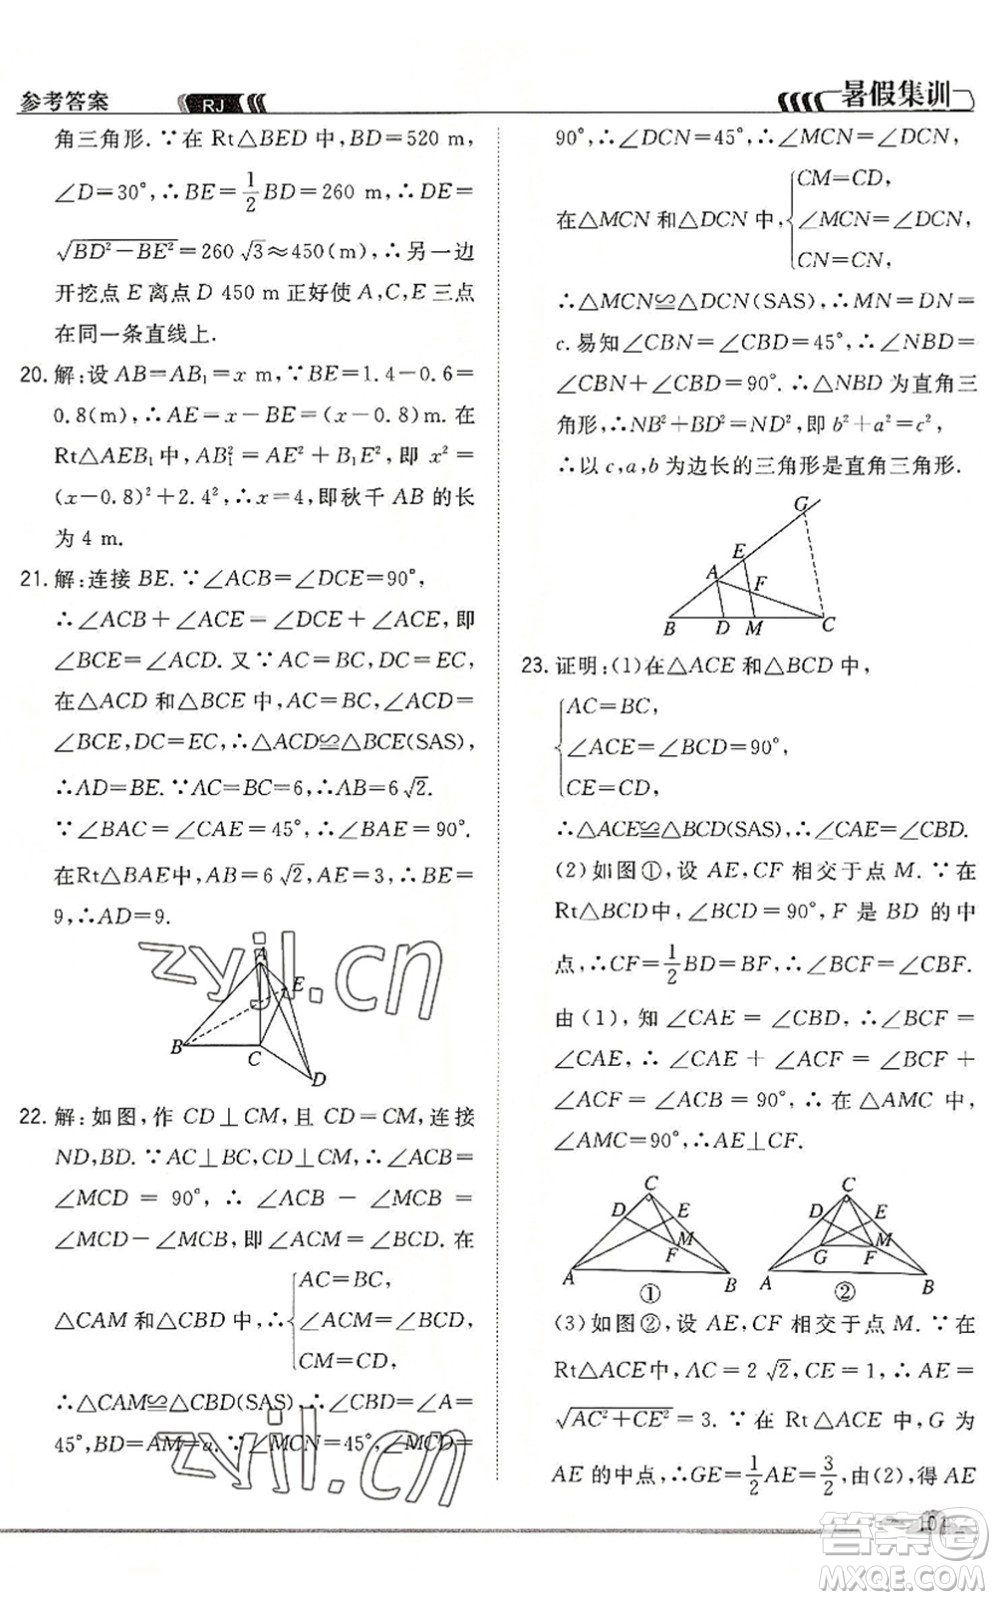 参考答案
RJ
暑假集训
角三角形.∵在 Rt△BED 中,BD=520 m,
∠D=30°,∴BE=1/2BD=260 m,∴DE=
√(BD²-BE²)=260√3≈450(m),∴另一边
开挖点 E 离点 D 450 m 正好使 A,C,E 三点
在同一条直线上.
20. 解:设 AB=AB₁=x m,∵BE=1.4-0.6=
0.8(m),∴AE=x-BE=(x-0.8)m.在
Rt△AEB₁中,AB₁²=AE²+B₁E²,即 x²=
(x-0.8)²+2.4²,∴x=4,即秋千 AB 的长
为 4 m.
21. 解:连接 BE.∵∠ACB=∠DCE=90°,
∴∠ACB+∠ACE=∠DCE+∠ACE,即
∠BCE=∠ACD.又∵AC=BC,DC=EC,
在△ACD 和△BCE 中,AC=BC,∠ACD=
∠BCE,DC=EC,∴△ACD≌△BCE(SAS),
∴AD=BE.∵AC=BC=6,∴AB=6√2.
∵∠BAC=∠CAE=45°,∴∠BAE=90°.
在Rt△BAE中,AB=6√2,AE=3,∴BE=
9,∴AD=9.
zyjl.cn
A
E
B
C
D
22. 解:如图,作 CD⊥CM,且 CD=CM,连接
ND,BD.∵AC⊥BC,CD⊥CM,∴∠ACB=
∠MCD=90°,∴∠ACB-∠MCB=
∠MCD-∠MCB,即∠ACM=∠BCD.在
△CAM 和△CBD 中,∴
AC=BC,
∠ACM=∠BCD,
CM=CD,
∴△CAM≌△CBD(SAS),∴∠CBD=∠A=
45°,BD=AM=a.∵∠MCN=45°,∠MCD=
zyjl.cn
90°,∴∠DCN=45°,∴∠MCN=∠DCN,
在△MCN 和△DCN 中,
CM=CD,
∠MCN=∠DCN,
CN=CN,
∴△MCN≌△DCN(SAS),∴MN=DN=
c.易知∠CBN=∠CBD=45°,∴∠NBD=
∠CBN+∠CBD=90°.∴△NBD 为直角三
角形,∴NB²+BD²=ND²,即 b²+a²=c²,
∴以 c,a,b 为边长的三角形是直角三角形.
G
E
A
F
B
D
M
C
23. 证明:(1)在△ACE 和△BCD 中,
AC=BC,
∠ACE=∠BCD=90°,
CE=CD,
∴△ACE≌△BCD(SAS),∴∠CAE=∠CBD.
(2)如图①,设 AE,CF 相交于点 M.∵在
Rt△BCD中,∠BCD=90°,F 是 BD 的中
点,∴CF=1/2BD=BF,∴∠BCF=∠CBF.
由(1),知∠CAE=∠CBD,∴∠BCF=
∠CAE,∴∠CAE+∠ACF=∠BCF+
∠ACF=∠ACB=90°,∴在△AMC 中,
∠AMC=90°,∴AE⊥CF.
C
D
E
M
F
A
B
①
C
D
E
M
G
F
A
B
②
(3)如图②,设 AE,CF 相交于点 M.∵在
Rt△ACE中,AC=2√2,CE=1,∴AE=
√(AC²+CE²)=3.∵在 Rt△ACE 中,G 为
AE 的中点,∴GE=1/2AE=3/2,由(2),得 AE
答案圈
MXQE.COM